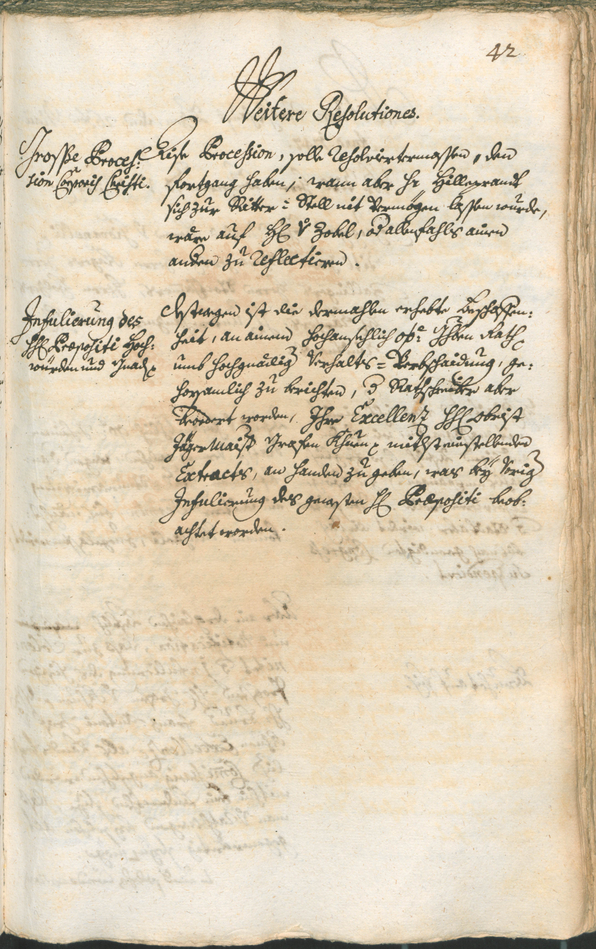 42
Weitere Resolutiones.
Grosse Proces-
sion Corporis Christi.
Dise Procession, solle resolvirtermassen, den
fortgang haben, wann aber Hr Hilleprandt
sich zur Ritter-Stell nit vermögen lassen wurde,
wäre auf Hl v Zobel, od allenfahls ainen
andern zu reflectieren.
Infulierung des
Hl Præpositi Hoch-
würden und Gnad
Destwegen ist die dermahlen erhebte Beschaffen-
heit, an ainem hochansehlich Gehaimben Rath
umb hochgnädig Verhalts-Verbschaidung, ge-
horsamlich zu berichten, Rathschreiber aber
beordert worden, Ihro Excellenz Hl obrist
Jägermaist Grafen Khuen mitlst zustellenden
Extracts, an handen zu geben, was bey vorig
Infulierung des gewesten Hl Præpositi beob-
achtet worden.